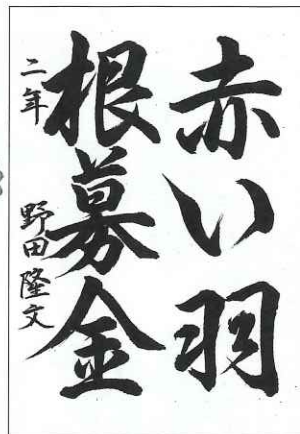 赤い羽
根募金
二年 野田隆文